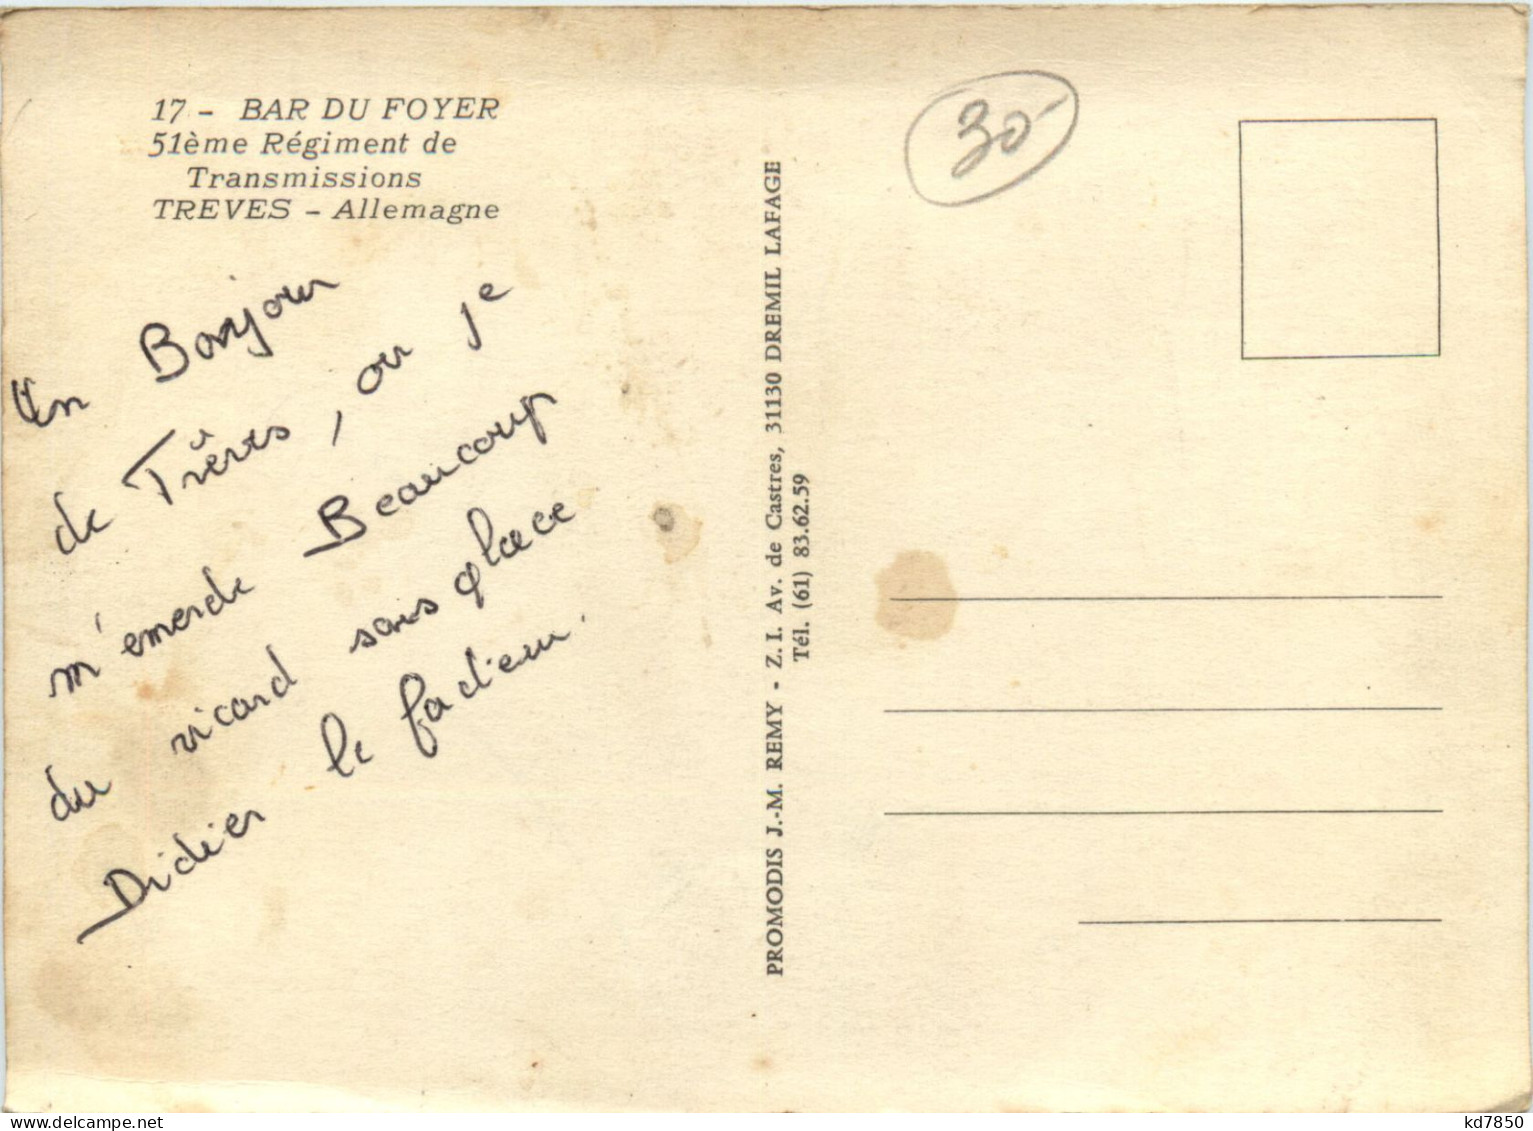 17 - BAR DU FOYER
51ème Régiment de
Transmissions
TREVES - Allemagne
Un Bonjour
de Trêves, ou je
m'emerde Beaucoup
du ricard sans glace
Didier le
30-
PROMODIS J.-M. REMY - Z. I. Av. de Castres, 31130 DREMIL LAFAGE
Tél. (61) 83.62.59
delcampe.net
kd7850